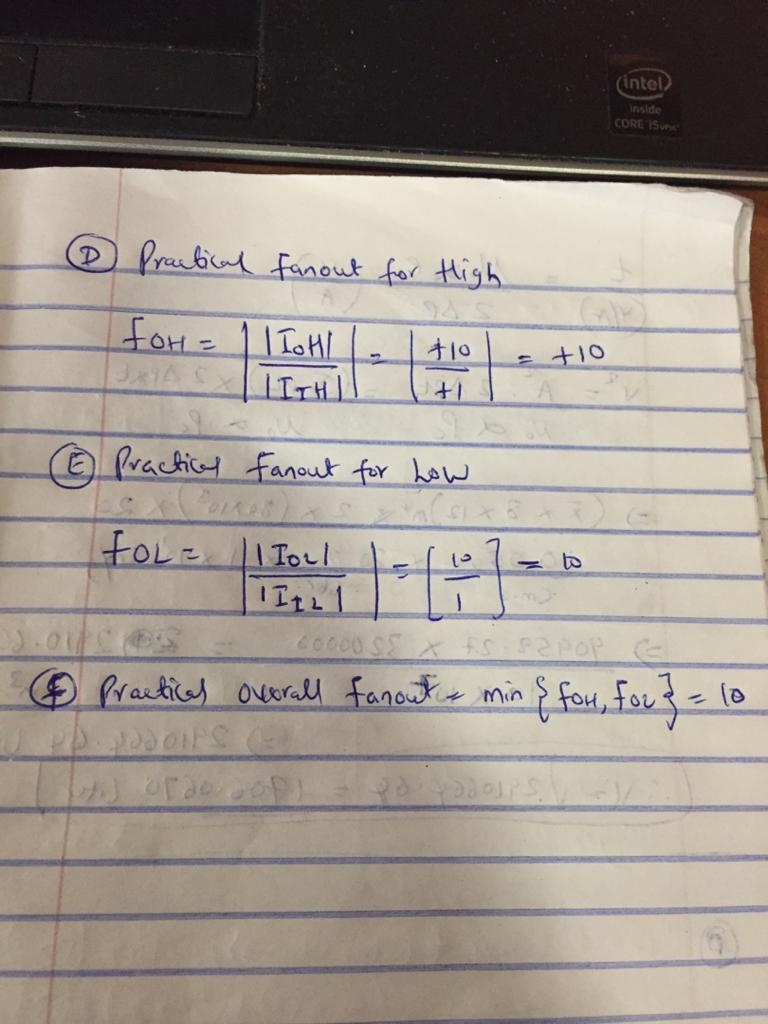 intel
inside
CORE i5 vPro
D Practical fanout for High
fOH = | |IOH| / |IIH| | = | +10 / +1 | = +10
E Practical fanout for Low
fOL = | |IOL| / |IIL| | = [ 10 / 1 ] = 10
F Practical overall fanout = min { fOH, fOL } = 10